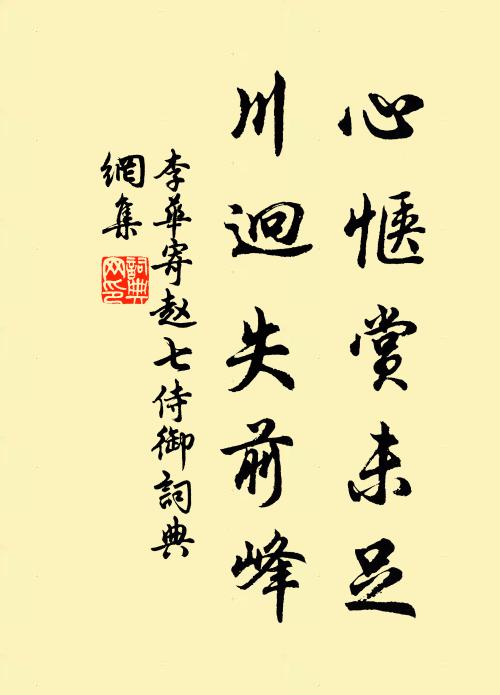 心惬赏未足
川迴失前峰
李華寄赵七侍御詞典
網集
詞典
网印